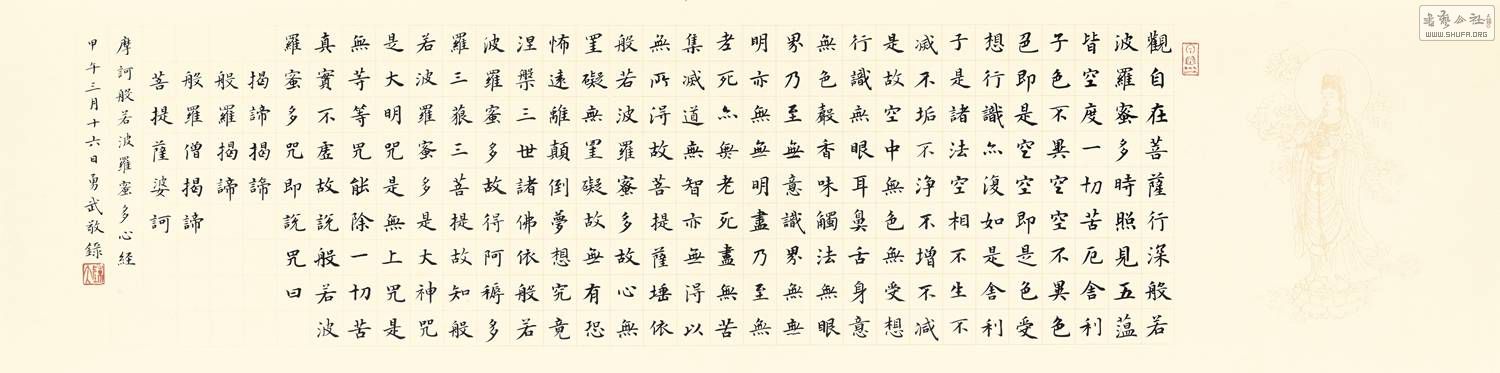 觀自在菩薩行深般若
波羅蜜多時照見五蘊
皆空度一切苦厄舍利
子色不異空空不異色
色即是空空即是色受
想行識亦復如是舍利
子是諸法空相不生不
減不垢不淨不增不減
是故空中無色無受想
行識無眼耳鼻舌身意
無色聲香味觸法無眼
界乃至無意識界無無
明亦無無明盡乃至無
老死亦無老死盡無苦
集滅道無智亦無得以
無所得故菩提薩埵依
般若波羅蜜多故心無
罣礙無罣礙故無有恐
怖遠離顛倒夢想究竟
涅槃三世諸佛依般若
波羅蜜多故得阿耨多
羅三藐三菩提故知般
若波羅蜜多是大神咒
是大明咒是無上咒是
無等等咒能除一切苦
真實不虛故說般若波
羅蜜多咒即說咒曰
揭諦揭諦
般羅揭諦
般羅僧揭諦
菩提薩婆訶
摩訶般若波羅蜜多心經
甲午三月十六日勇武敬錄
書藝公社
WWW.SHUFA.ORG